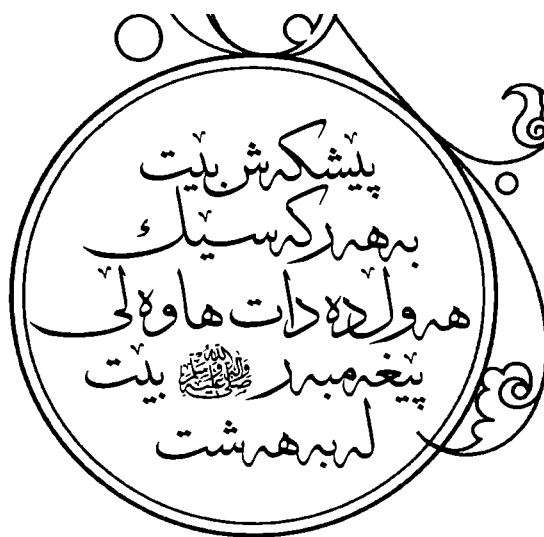 پێشکەش بێت
بەهەرکەسێك
هەوڵدەدات هاوەڵی
پێغەمبەر ﷺ بێت
لەبەهەشت